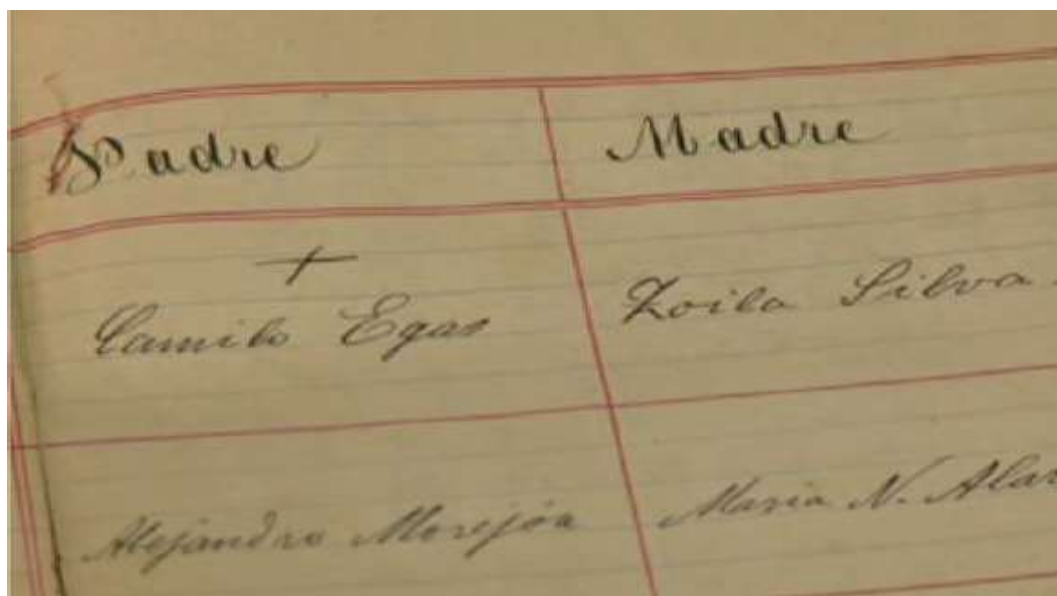 Padre Madre
+
Camilo Egas Zoila Silva
Alejandro Morejón Maria N. Alar